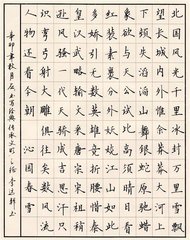 北国风光千里冰封万里雪飘
望长城内外惟余莽莽大河上
下顿失滔滔山舞银蛇原驰蜡
象欲与天公试比高须晴日看
红装素裹分外妖娆江山如此
多娇引无数英雄竞折腰惜秦
皇汉武略输文采唐宗宋祖稍
逊风骚一代天骄成吉思汗只
识弯弓射大雕俱往矣数风流
人物还看今朝 沁园春雪
辛卯年秋月 写经典传承文明之